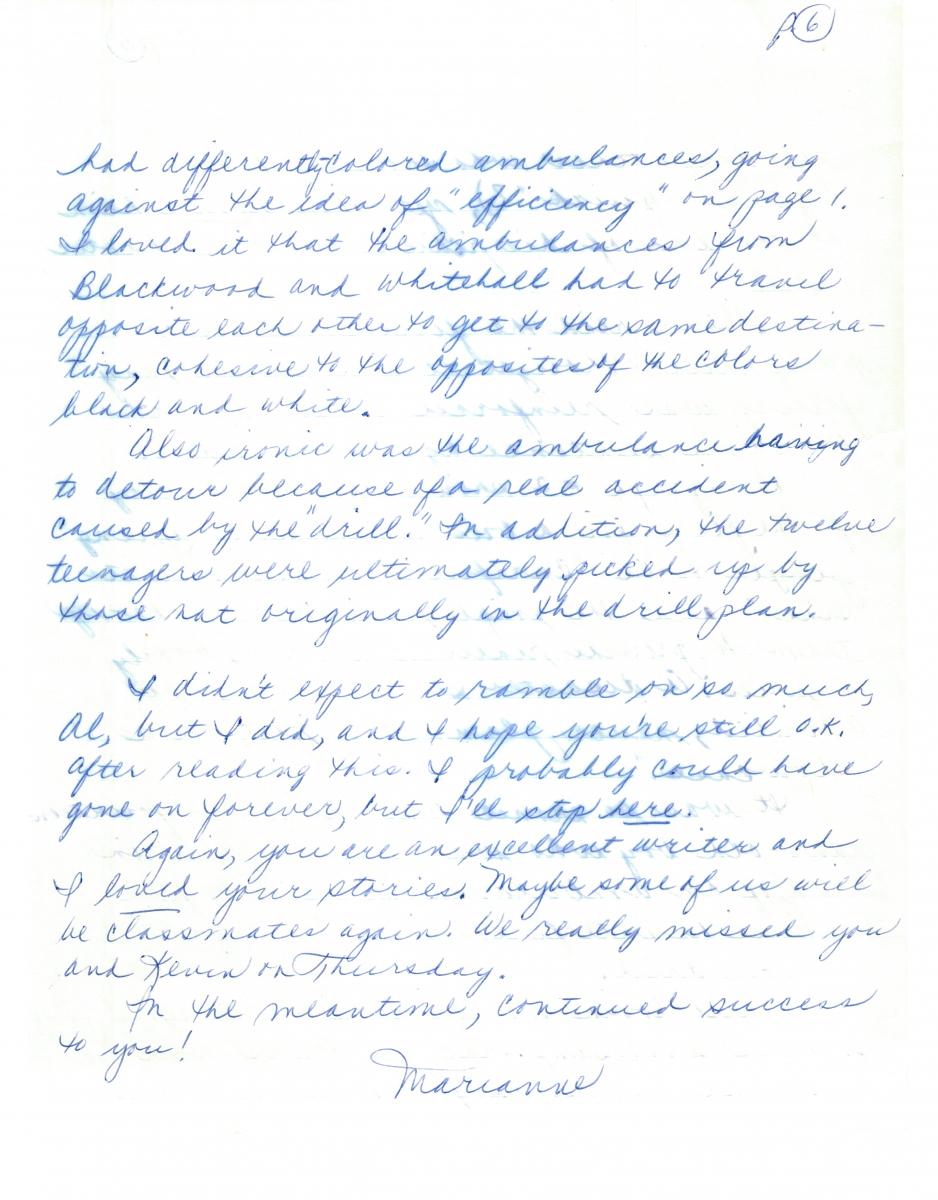 p 6
had differently-colored ambulances, going
against the idea of "efficiency" on page 1.
I loved it that the ambulances from
Blackwood and Whitehall had to travel
opposite each other to get to the same destina-
tion, cohesive to the opposites of the colors
black and white.
Also ironic was the ambulance having
to detour because of a real accident
caused by the "drill." In addition, the twelve
teenagers were ultimately picked up by
those not originally in the drill plan.
I didn't expect to ramble on so much,
Al, but I did, and I hope you're still O.K.
after reading this. I probably could have
gone on forever, but I'll stop here.
Again, you are an excellent writer and
I loved your stories. Maybe some of us will
be classmates again. We really missed you
and Kevin on Thursday.
In the meantime, continued success
to you!
Marianne